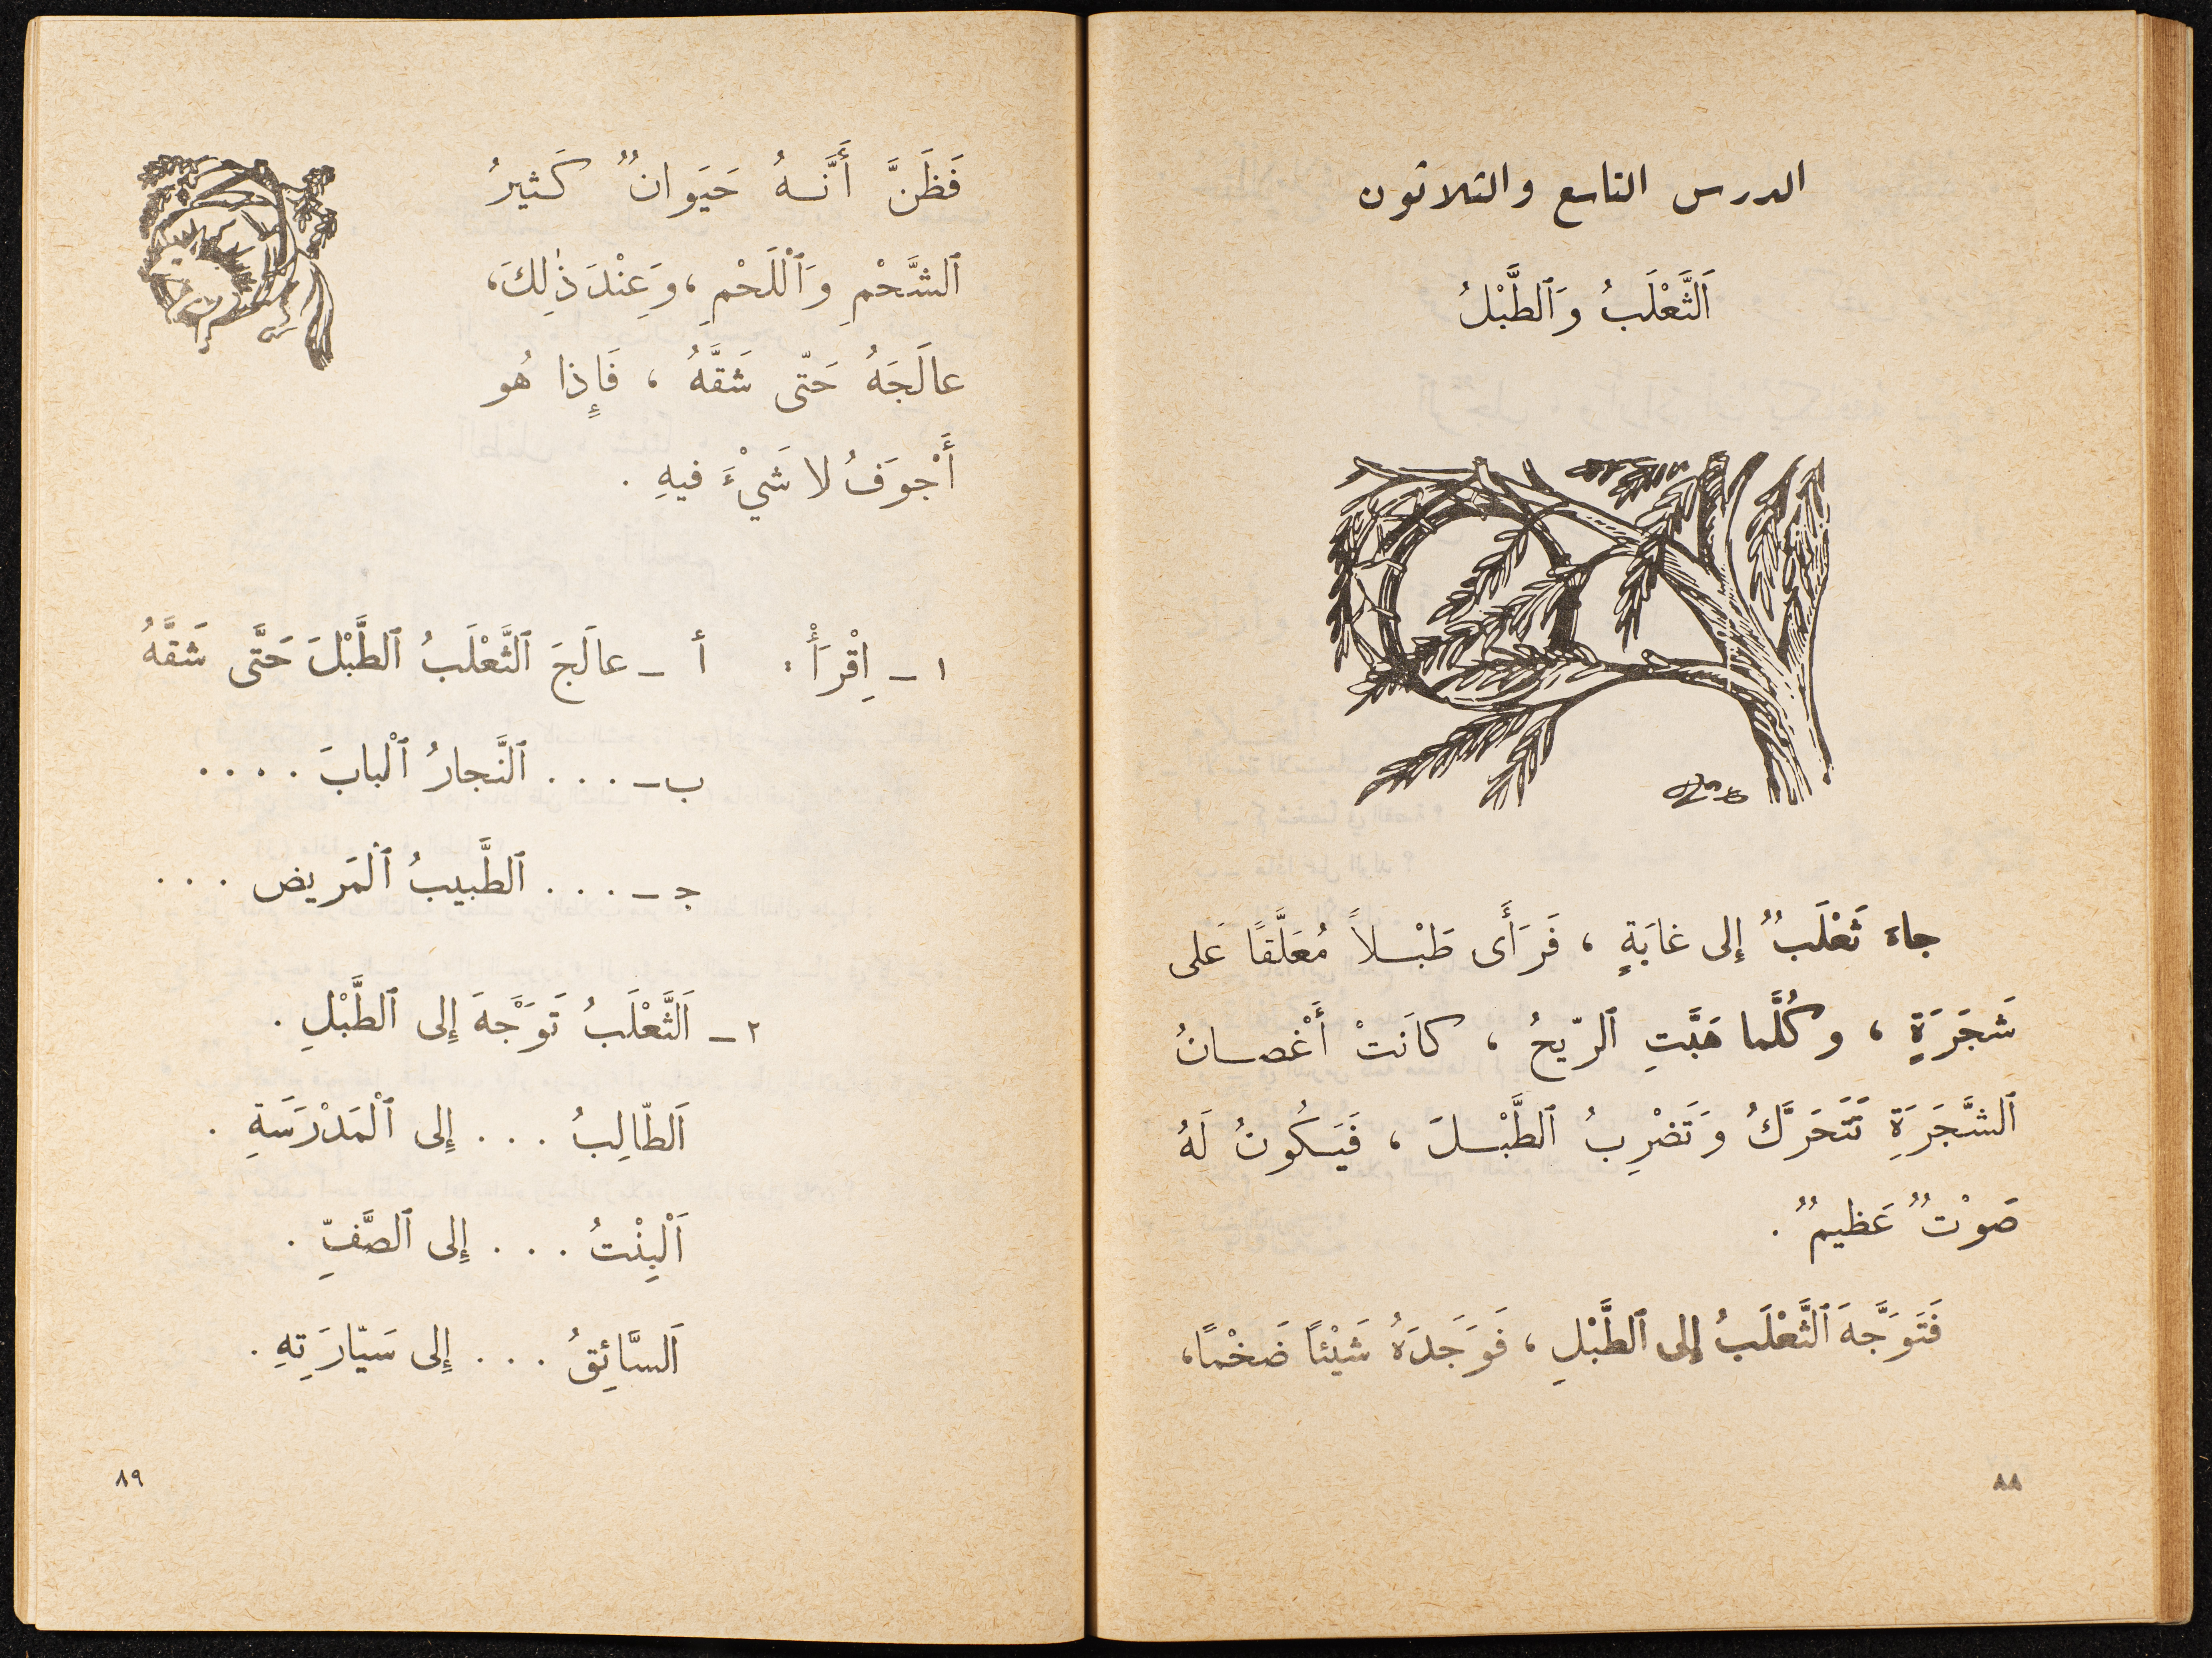 الدرس التاسع والثلاثون
اَلثَّعْلَبُ وَٱلطَّبْلُ
جاءَ ثَعْلَبٌ إلى غابَةٍ ، فَرَأَى طَبْلاً مُعَلَّقًا عَلى
شَجَرَةٍ ، وكُلَّما هَبَّتِ ٱلرّيحُ ، كانَتْ أَغْصانُ
ٱلشَّجَرَةِ تَتَحَرَّكُ وَتَضْرِبُ ٱلطَّبْلَ ، فَيَكُونُ لَهُ
صَوْتٌ عَظيمٌ .
فَتَوَجَّهَ ٱلثَّعْلَبُ إلى ٱلطَّبْلِ ، فَوَجَدَهُ شَيْئًا ضَخْمًا،
٨٨
فَظَنَّ أَنَّهُ حَيَوانٌ كَثيرُ
ٱلشَّحْمِ وَٱلْلَحْمِ ، وَعِنْدَ ذٰلِكَ،
عالَجَهُ حَتّى شَقَّهُ ، فَإِذا هُو
أَجْوَفُ لا شَيْءَ فيهِ .
١ – اِقْرَأْ : أ – عالَجَ ٱلثَّعْلَبُ ٱلطَّبْلَ حَتَّى شَقَّهُ
ب – . . . ٱلنَّجارُ ٱلْبابَ . . . .
ج – . . . ٱلطَّبيبُ ٱلْمَريض . . .
٢ – اَلثَّعْلَبُ تَوَجَّهَ إِلى ٱلطَّبْلِ .
اَلطّالِبُ . . . إِلى ٱلْمَدْرَسَةِ .
اَلْبِنْتُ . . . إِلى ٱلصَّفِّ .
اَلسَّائِقُ . . . إِلى سَيّارَتِهِ .
٨٩